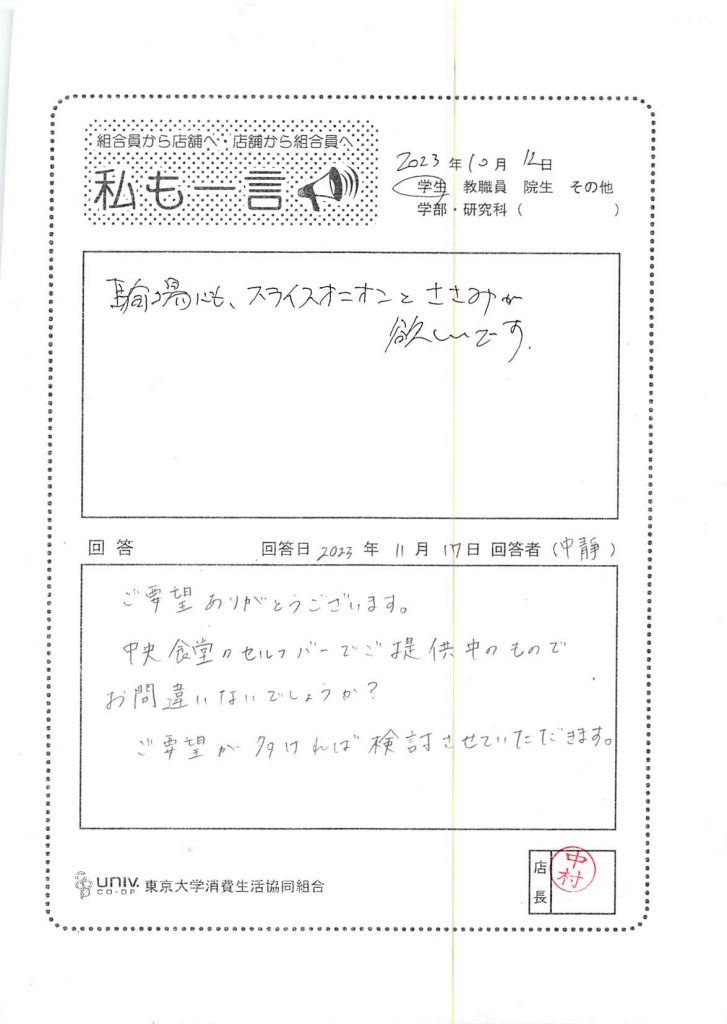 組合員から店舗へ・店舗から組合員へ
私も一言
2023年10月12日
学生 教職員 院生 その他
学部・研究科( )
にも、スライスオニオンとささみが
欲しいです.
回答 回答日 2023年11月17日 回答者(中靜)
ご要望ありがとうございます。
中央食堂のセルフバーでご提供中のもので
お間違いないでしょうか?
ご要望が多ければ検討させていただきます。
UNIV. CO-OP 東京大学消費生活協同組合
店長
中村